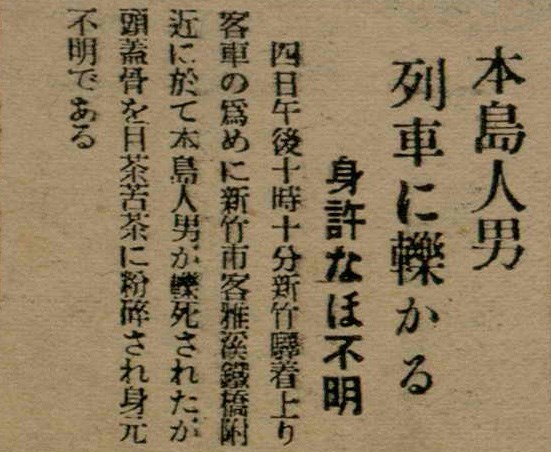 本島人男
列車に轢かる
身許なほ不明
四日午後十時十分新竹驛着上り
客車の爲めに新竹市客雅溪鐵橋附
近に於て本島人男が轢死されたが
頭蓋骨を目茶苦茶に粉碎され身元
不明である